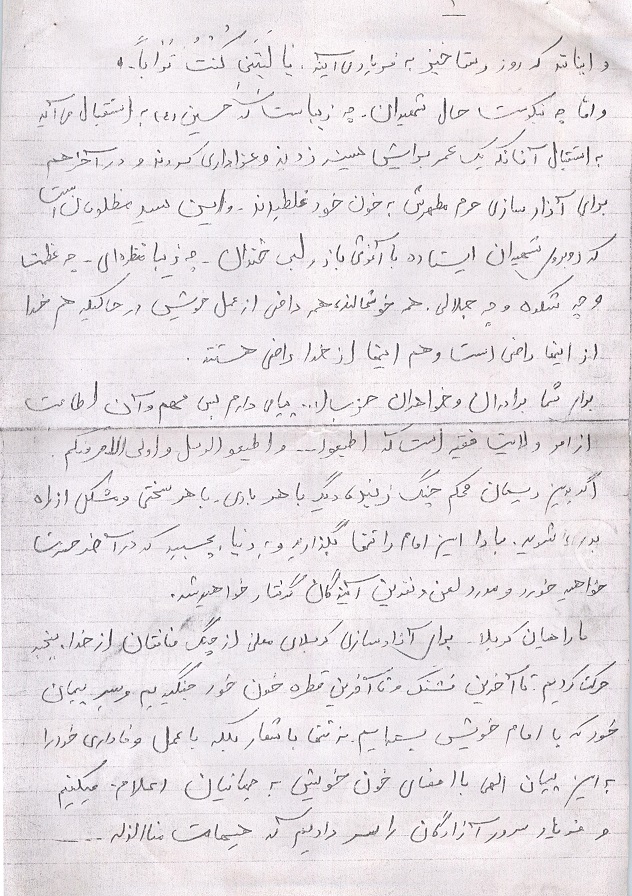 ۱
و اینانند که روز رستاخیز به فریاد می‌آیند. یا لَیتَنی کُنتُ تُراباً.
واما چه نیکوست حال شهیدان. چه زیباست که حسین (ع) به استقبال می‌آید
به استقبال آنانکه یک عمر برایش سینه زدند و عزاداری کردند و در آخر هم
برای آزاد سازی حرم مطهرش به خون خود غلطیدند. و این سید مظلومان است
که روبروی شهیدان ایستاده با آغوشی باز و لبی خندان. چه زیبا منظره‌ای. چه عظمت
و چه شکوه و چه جلالی. همه خوشحالند، همه راضی از عمل خویش در حالیکه هم خدا
از اینها راضی است و هم اینها از خدا راضی هستند.
برای شما برادران و خواهران حزب ا... پیامی دارم بس مهم و آن اطاعت
از امر ولایت فقیه است که اطیعوا... و اطیعو الرسل و اولی الامر منکم.
اگر به این ریسمان محکم چنگ زنید، دیگر با هر بادی. با هر سختی و مشکل از راه
بدر نشوید. مبادا این امام را تنها بگذارید و به دنیا بچسبید که در آخر حسرت
خواهید خورد و مورد لعن و نفرین آیندگان گرفتار خواهید شد.
ما راهیان کربلا. برای آزاد سازی کربلای معلی از چنگ منافقان از خدا بیخبر
حرکت کردیم. تا آخرین فشنگ و تا آخرین قطره خون خود جنگیدیم و سر پیمان
خود که با امام خویش بسته‌ایم. نه تنها با شعار بلکه با عمل وفاداری خود را
به این پیمان الهی با امضای خون خویش به جهانیان اعلام میکنیم
و فریاد سرور آزادگان را سر دادیم که هیهات مناالذله ....